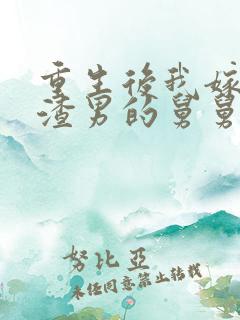 重生後我嫁
渣男的舅舅
努比亞
未经同意禁止转载